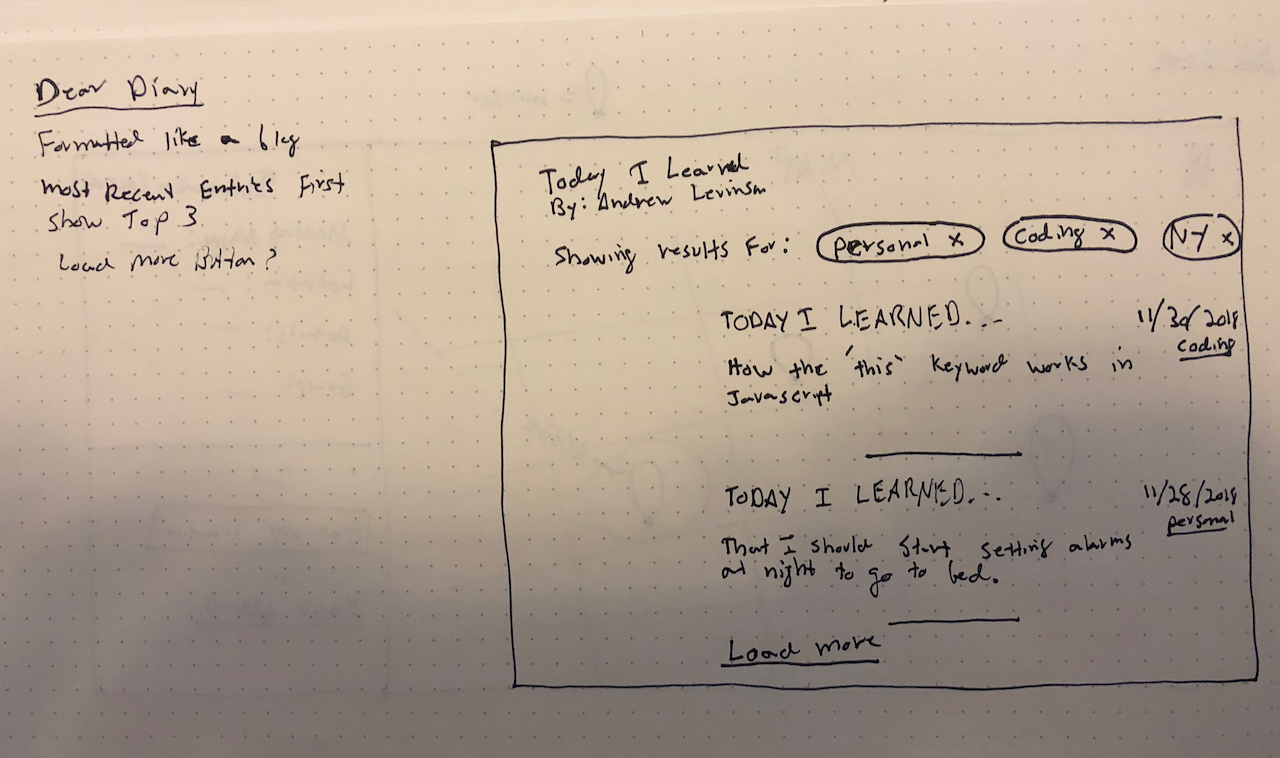 Dear Diary
Formatted like a blog
most Recent Entries First
Show Top 3
Load more Button?
Today I Learned
By: Andrew Levinson
Showing results For: personal x coding x NY x
TODAY I LEARNED... 11/30/2018
coding
How the 'this' keyword works in
Javascript
TODAY I LEARNED... 11/28/2018
personal
That I should start setting alarms
at night to go to bed.
Load more